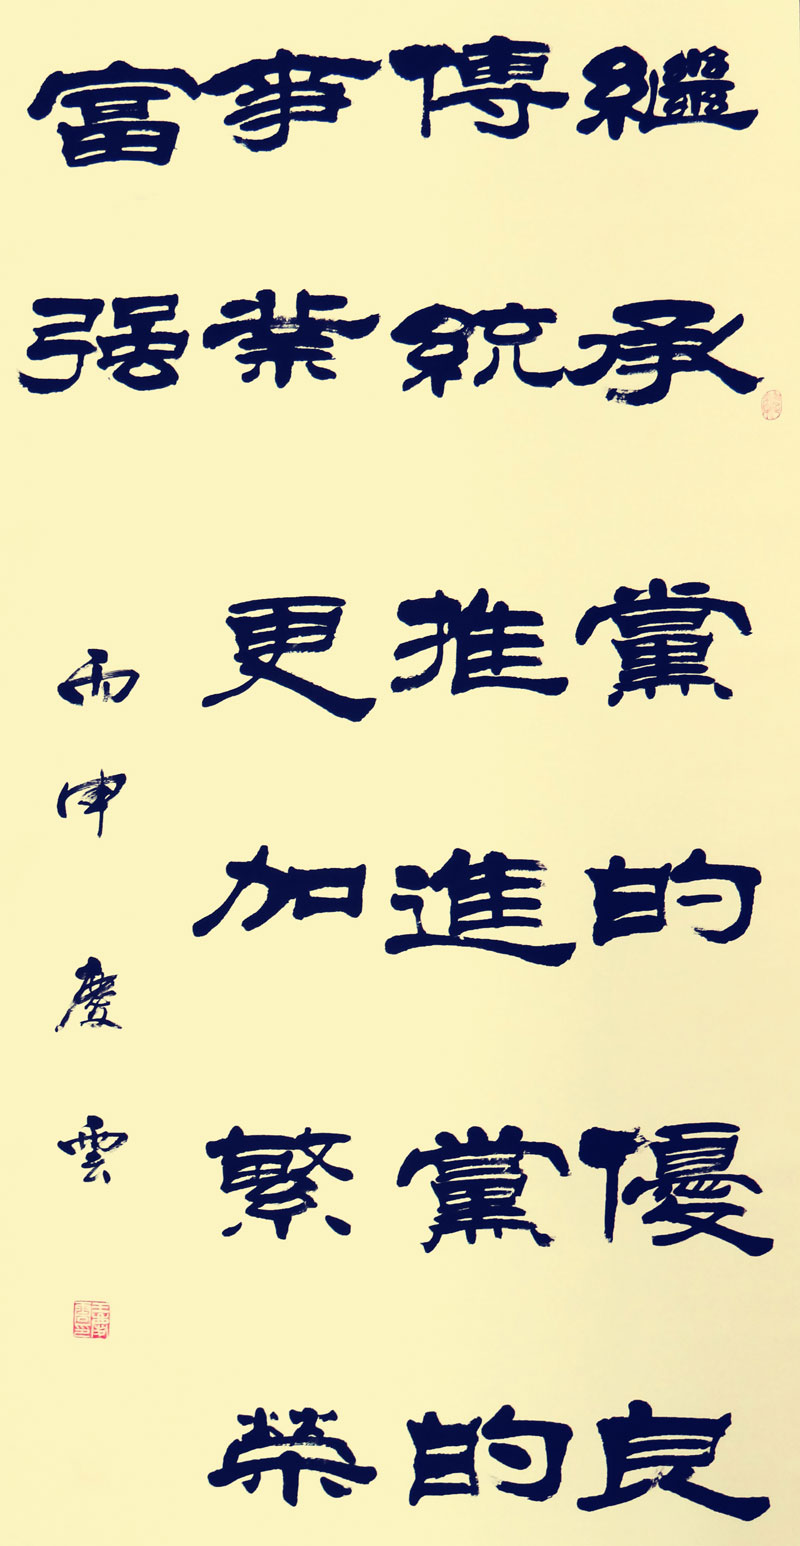 繼承黨的優良
傳統推進黨的
事業更加繁榮
富强
丙申 慶雲